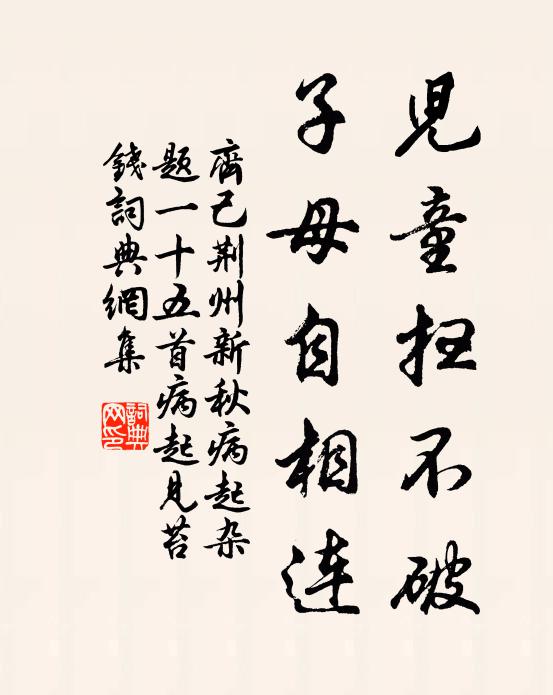 兒童扫不破
子母自相連
齊己荆州新秋病起杂
题一十五首病起見苔
錢詞典網集
詞典
网印